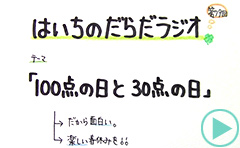 はいちのだらだラジオ
テーマ
「100点の日と30点の日」
だから面白い。
楽しい春休みを。